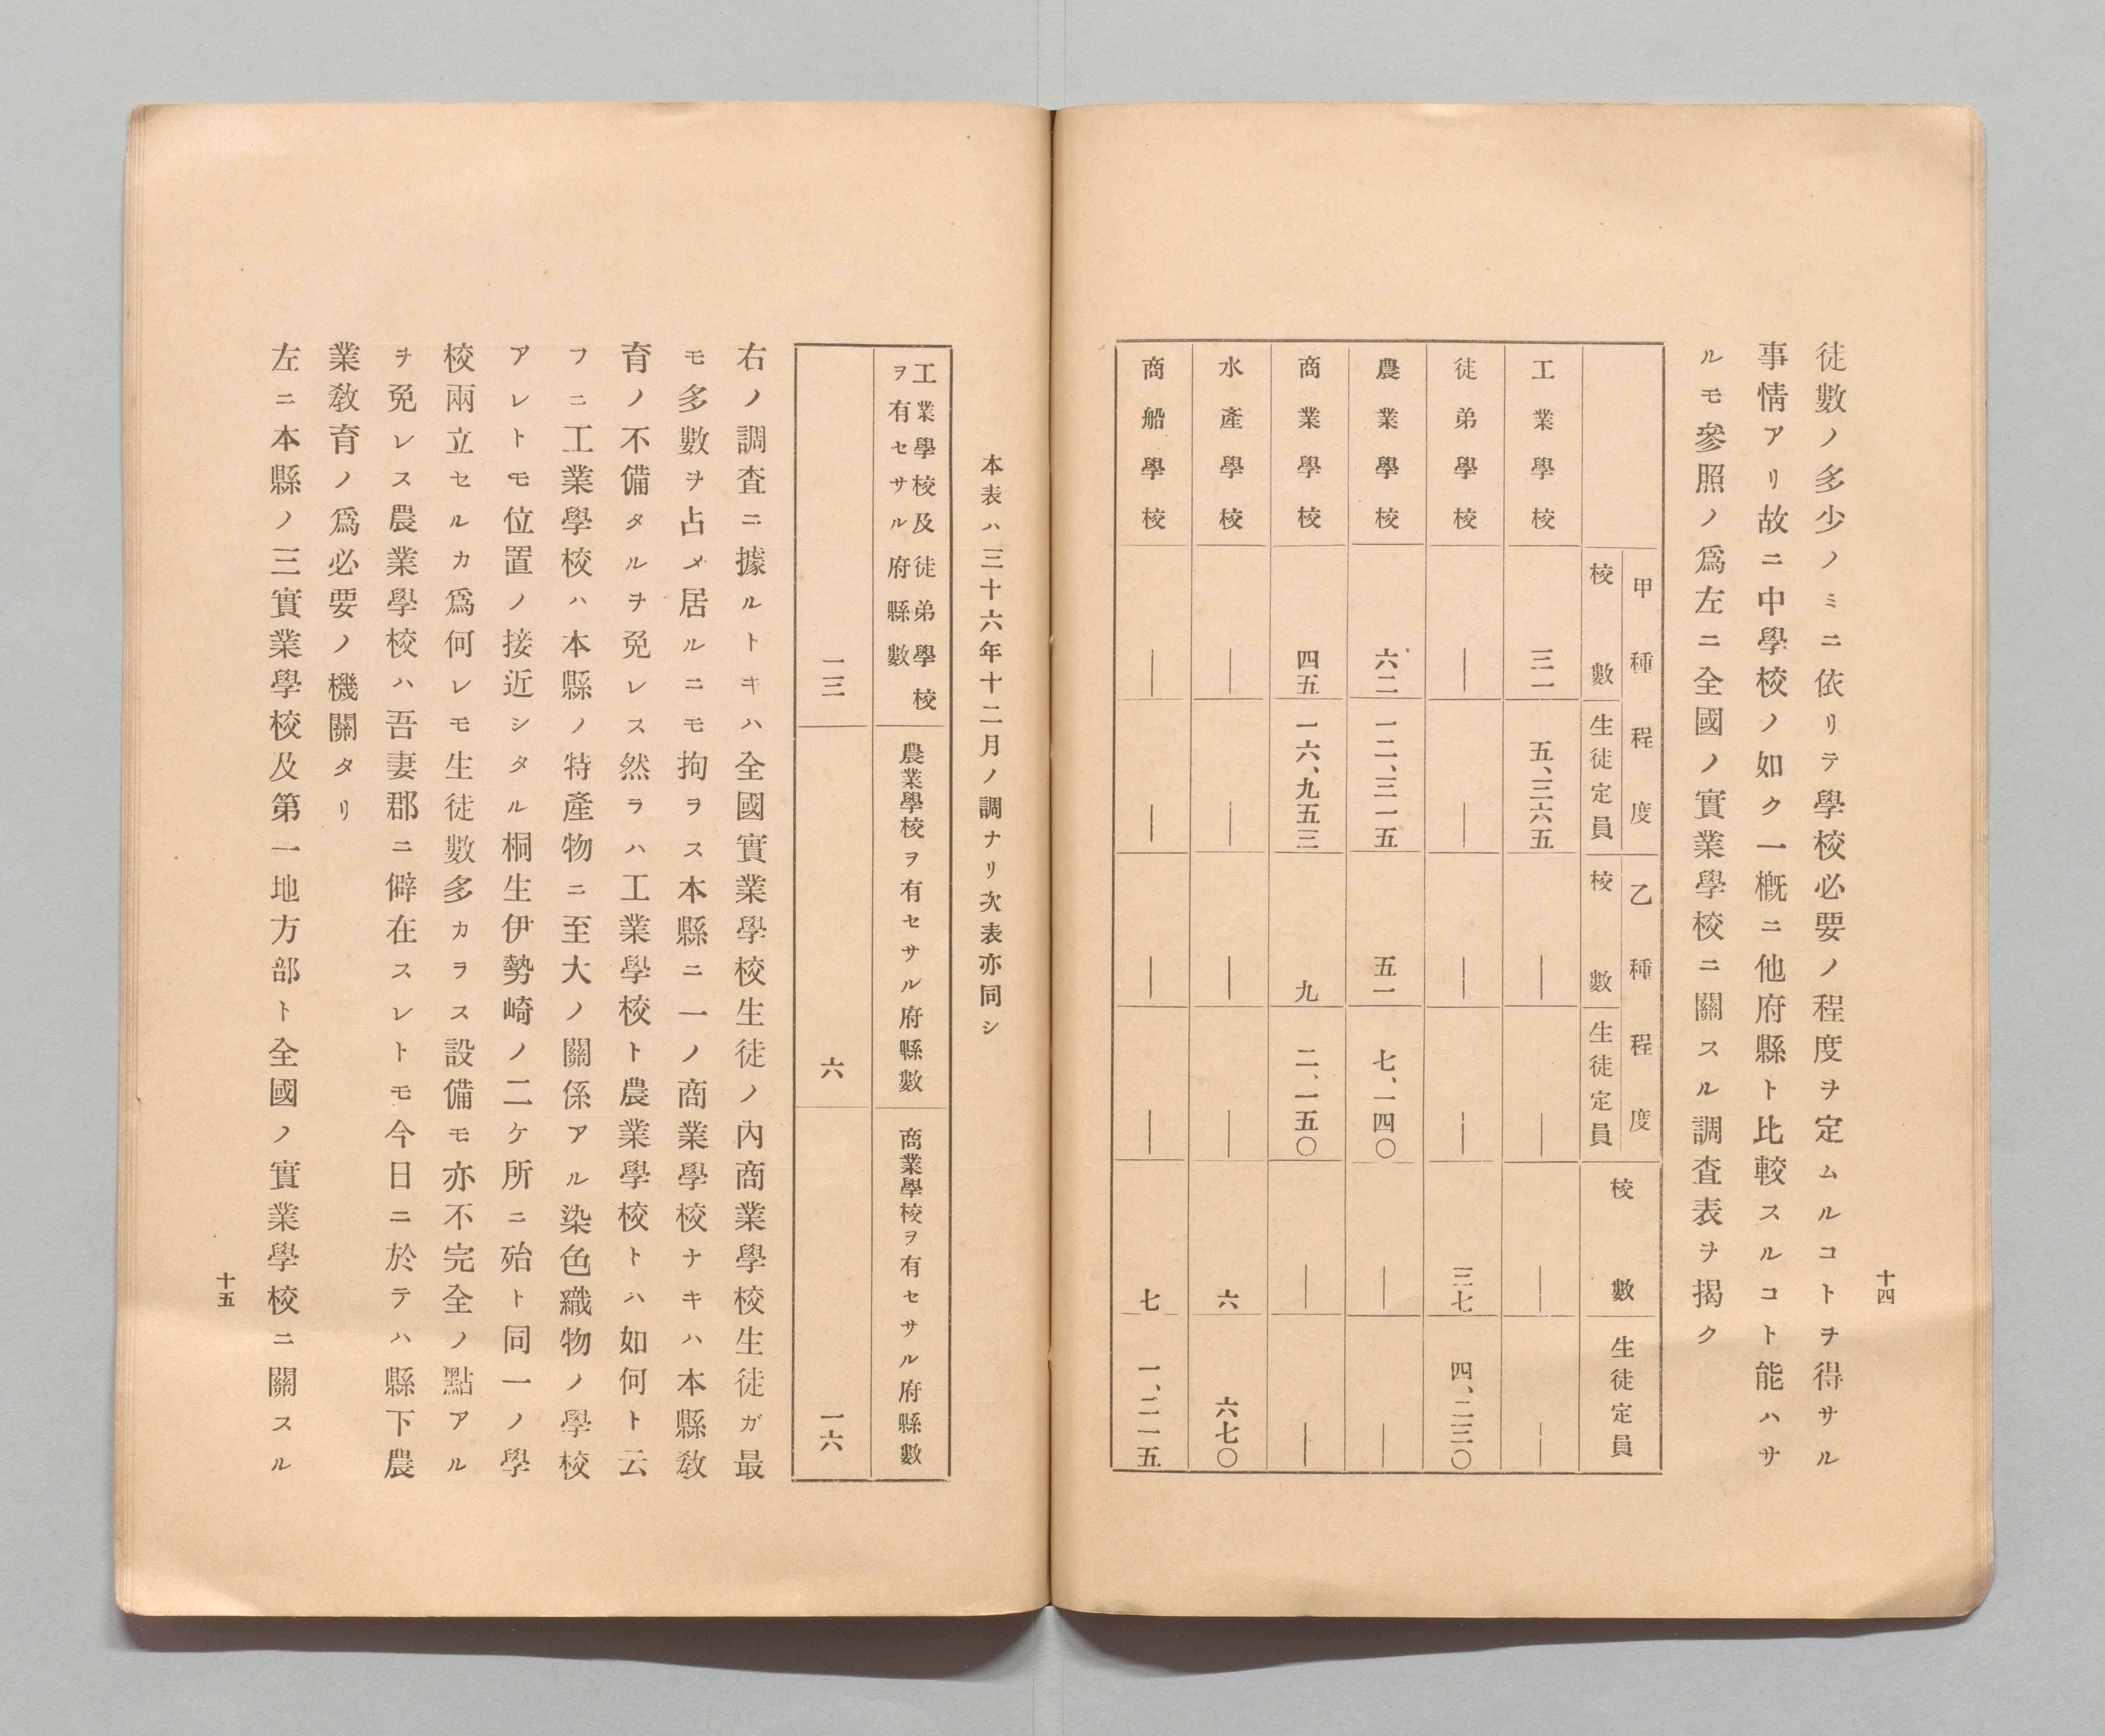 十四
徒數ノ多少ノミニ依リテ學校必要ノ程度ヲ定ムルコトヲ得サル
事情アリ故ニ中學校ノ如ク一概ニ他府縣ト比較スルコト能ハサ
ルモ參照ノ爲左ニ全國ノ實業學校ニ關スル調査表ヲ揭ク
甲種程度 乙種程度
校數 生徒定員 校數 生徒定員 校數 生徒定員
工業學校 三一 五、三六五 ― ― ― ―
徒弟學校 ― ― ― ― 三七 四、二三〇
農業學校 六二 一二、三一五 五一 七、一四〇 ― ―
商業學校 四五 一六、九五三 九 二、一五〇 ― ―
水產學校 ― ― ― ― 六 六七〇
商船學校 ― ― ― ― 七 一、二一五
本表ハ三十六年十二月ノ調ナリ次表亦同シ
工業學校及徒弟學校
ヲ有セサル府縣數
農業學校ヲ有セサル府縣數
商業學校ヲ有セサル府縣數
一三 六 一六
右ノ調査ニ據ルトキハ全國實業學校生徒ノ內商業學校生徒ガ最
モ多數ヲ占メ居ルニモ拘ヲス本縣ニ一ノ商業學校ナキハ本縣敎
育ノ不備タルヲ免レス然ラハ工業學校ト農業學校トハ如何ト云
フニ工業學校ハ本縣ノ特產物ニ至大ノ關係アル染色織物ノ學校
アレトモ位置ノ接近シタル桐生伊勢崎ノ二ケ所ニ殆ト同一ノ學
校兩立セルカ爲何レモ生徒數多カラス設備モ亦不完全ノ點アル
ヲ免レス農業學校ハ吾妻郡ニ僻在スレトモ今日ニ於テハ縣下農
業敎育ノ爲必要ノ機關タリ
左ニ本縣ノ三實業學校及第一地方部ト全國ノ實業學校ニ關スル
十五